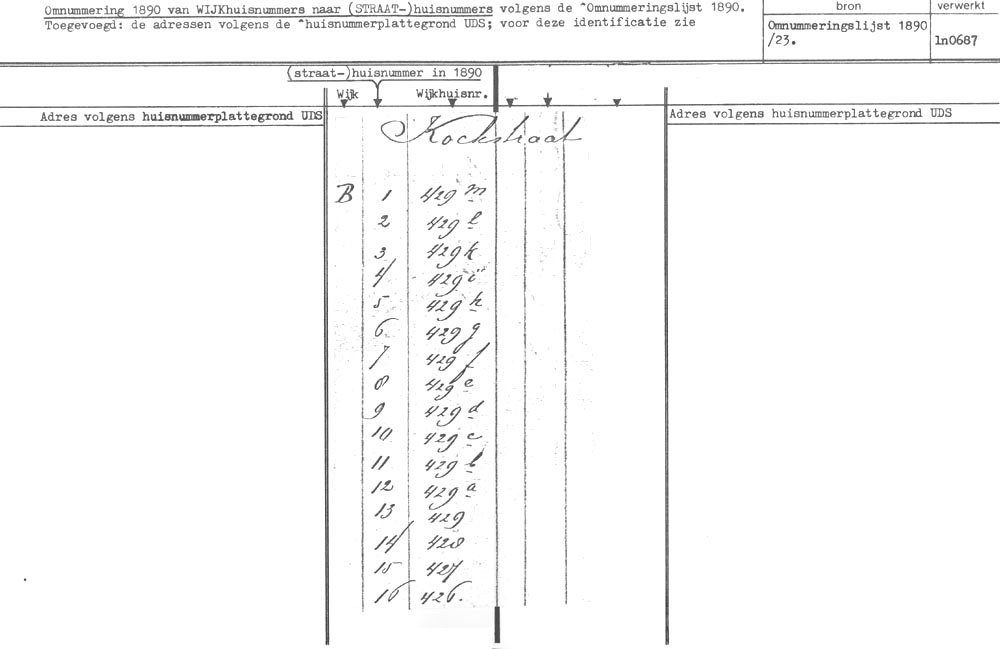 Omnummering 1890 van WIJKhuisnummers naar (STRAAT-)huisnummers volgens de ^Omnummeringslijst 1890.
Toegevoegd: de adressen volgens de ^huisnummerplattegrond UDS; voor deze identificatie zie
bron
verwerkt
Omnummeringslijst 1890
/23.
ln0687
(straat-)huisnummer in 1890
Wijk
Wijkhuisnr.
Adres volgens huisnummerplattegrond UDS
Adres volgens huisnummerplattegrond UDS
Kockstraat
B 1 429 m
2 429 l
3 429 k
4 429 i
5 429 h
6 429 g
7 429 f
8 429 e
9 429 d
10 429 c
11 429 b
12 429 a
13 429
14 428
15 427
16 426.